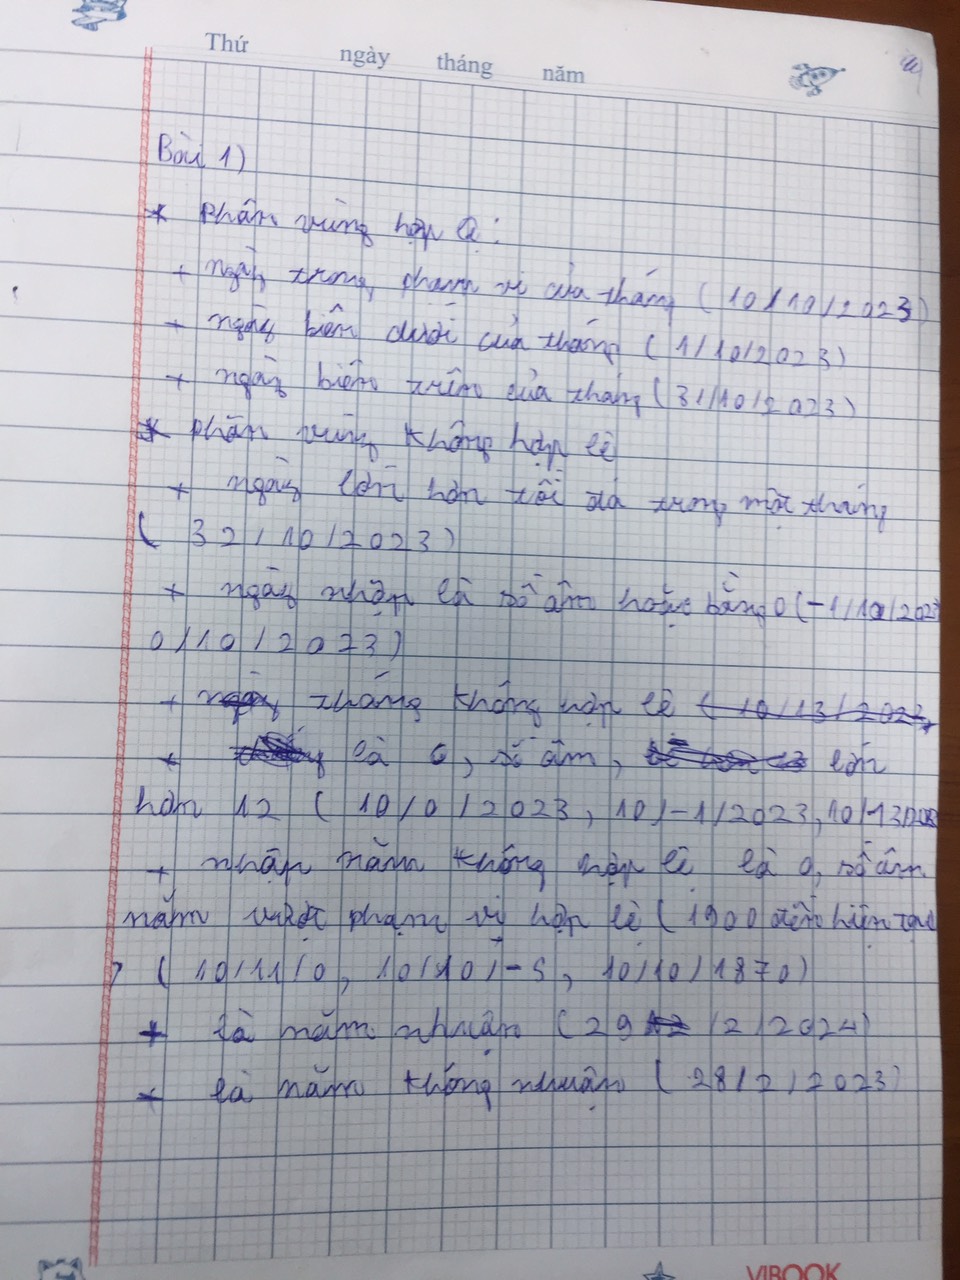 Thứ ngày tháng năm
Bài 1)
* phân vùng hợp lệ:
+ ngày trong phạm vi của tháng (10/10/2023)
+ ngày biên dưới của tháng (1/10/2023)
+ ngày biên trên của tháng (31/10/2023)
* phân vùng không hợp lệ
+ ngày lớn hơn tối đa trong một tháng
( 32/10/2023)
+ ngày nhập là số âm hoặc bằng 0 (-1/10/2023
0/10/2023)
+ tháng không hợp lệ
+ là 0, số âm, lớn
hơn 12 ( 10/0/2023, 10/-1/2023, 10/13/2023
+ nhập năm không hợp lệ là 0, số âm
năm vượt phạm vi hợp lệ ( 1900 đến hiện tại
) ( 10/11/0, 10/10/-5, 10/10/1870)
+ là năm nhuận (29 /2/2024)
+ là năm không nhuận ( 28/2/2023)
VIBOOK